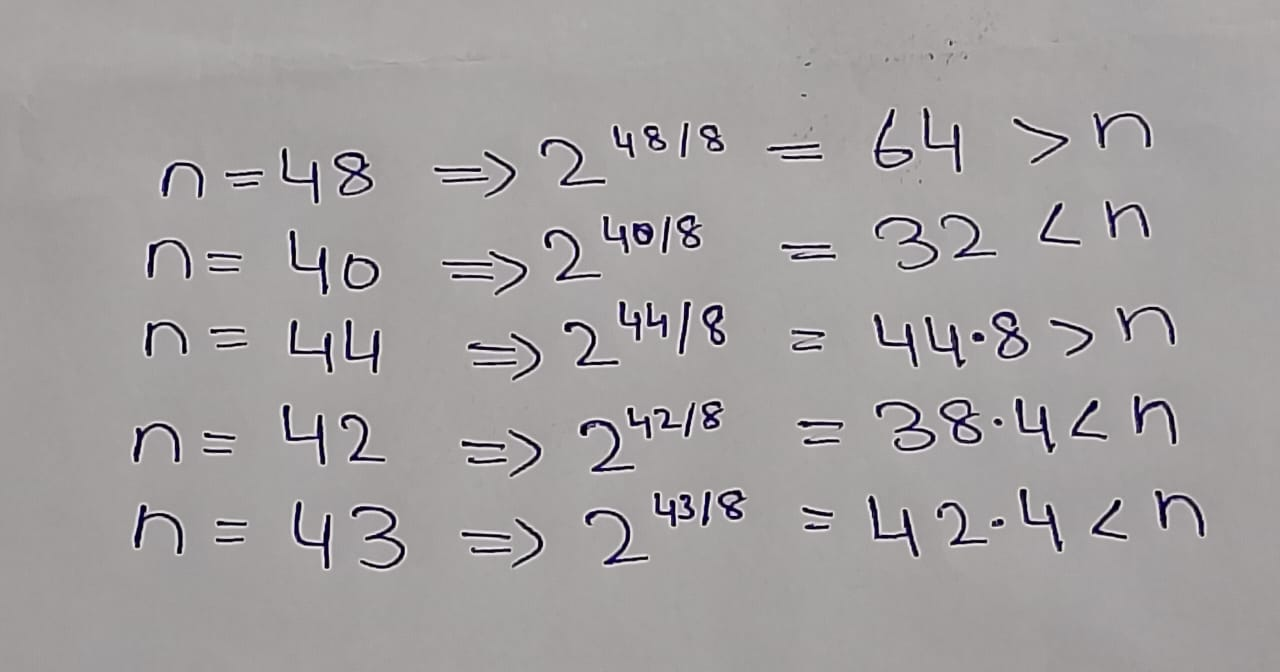 n=48 => 2^48/8 = 64 > n
n= 40 => 2^40/8 = 32 < n
n= 44 => 2^44/8 = 44.8 > n
n= 42 => 2^42/8 = 38.4 < n
n= 43 => 2^43/8 = 42.4 < n